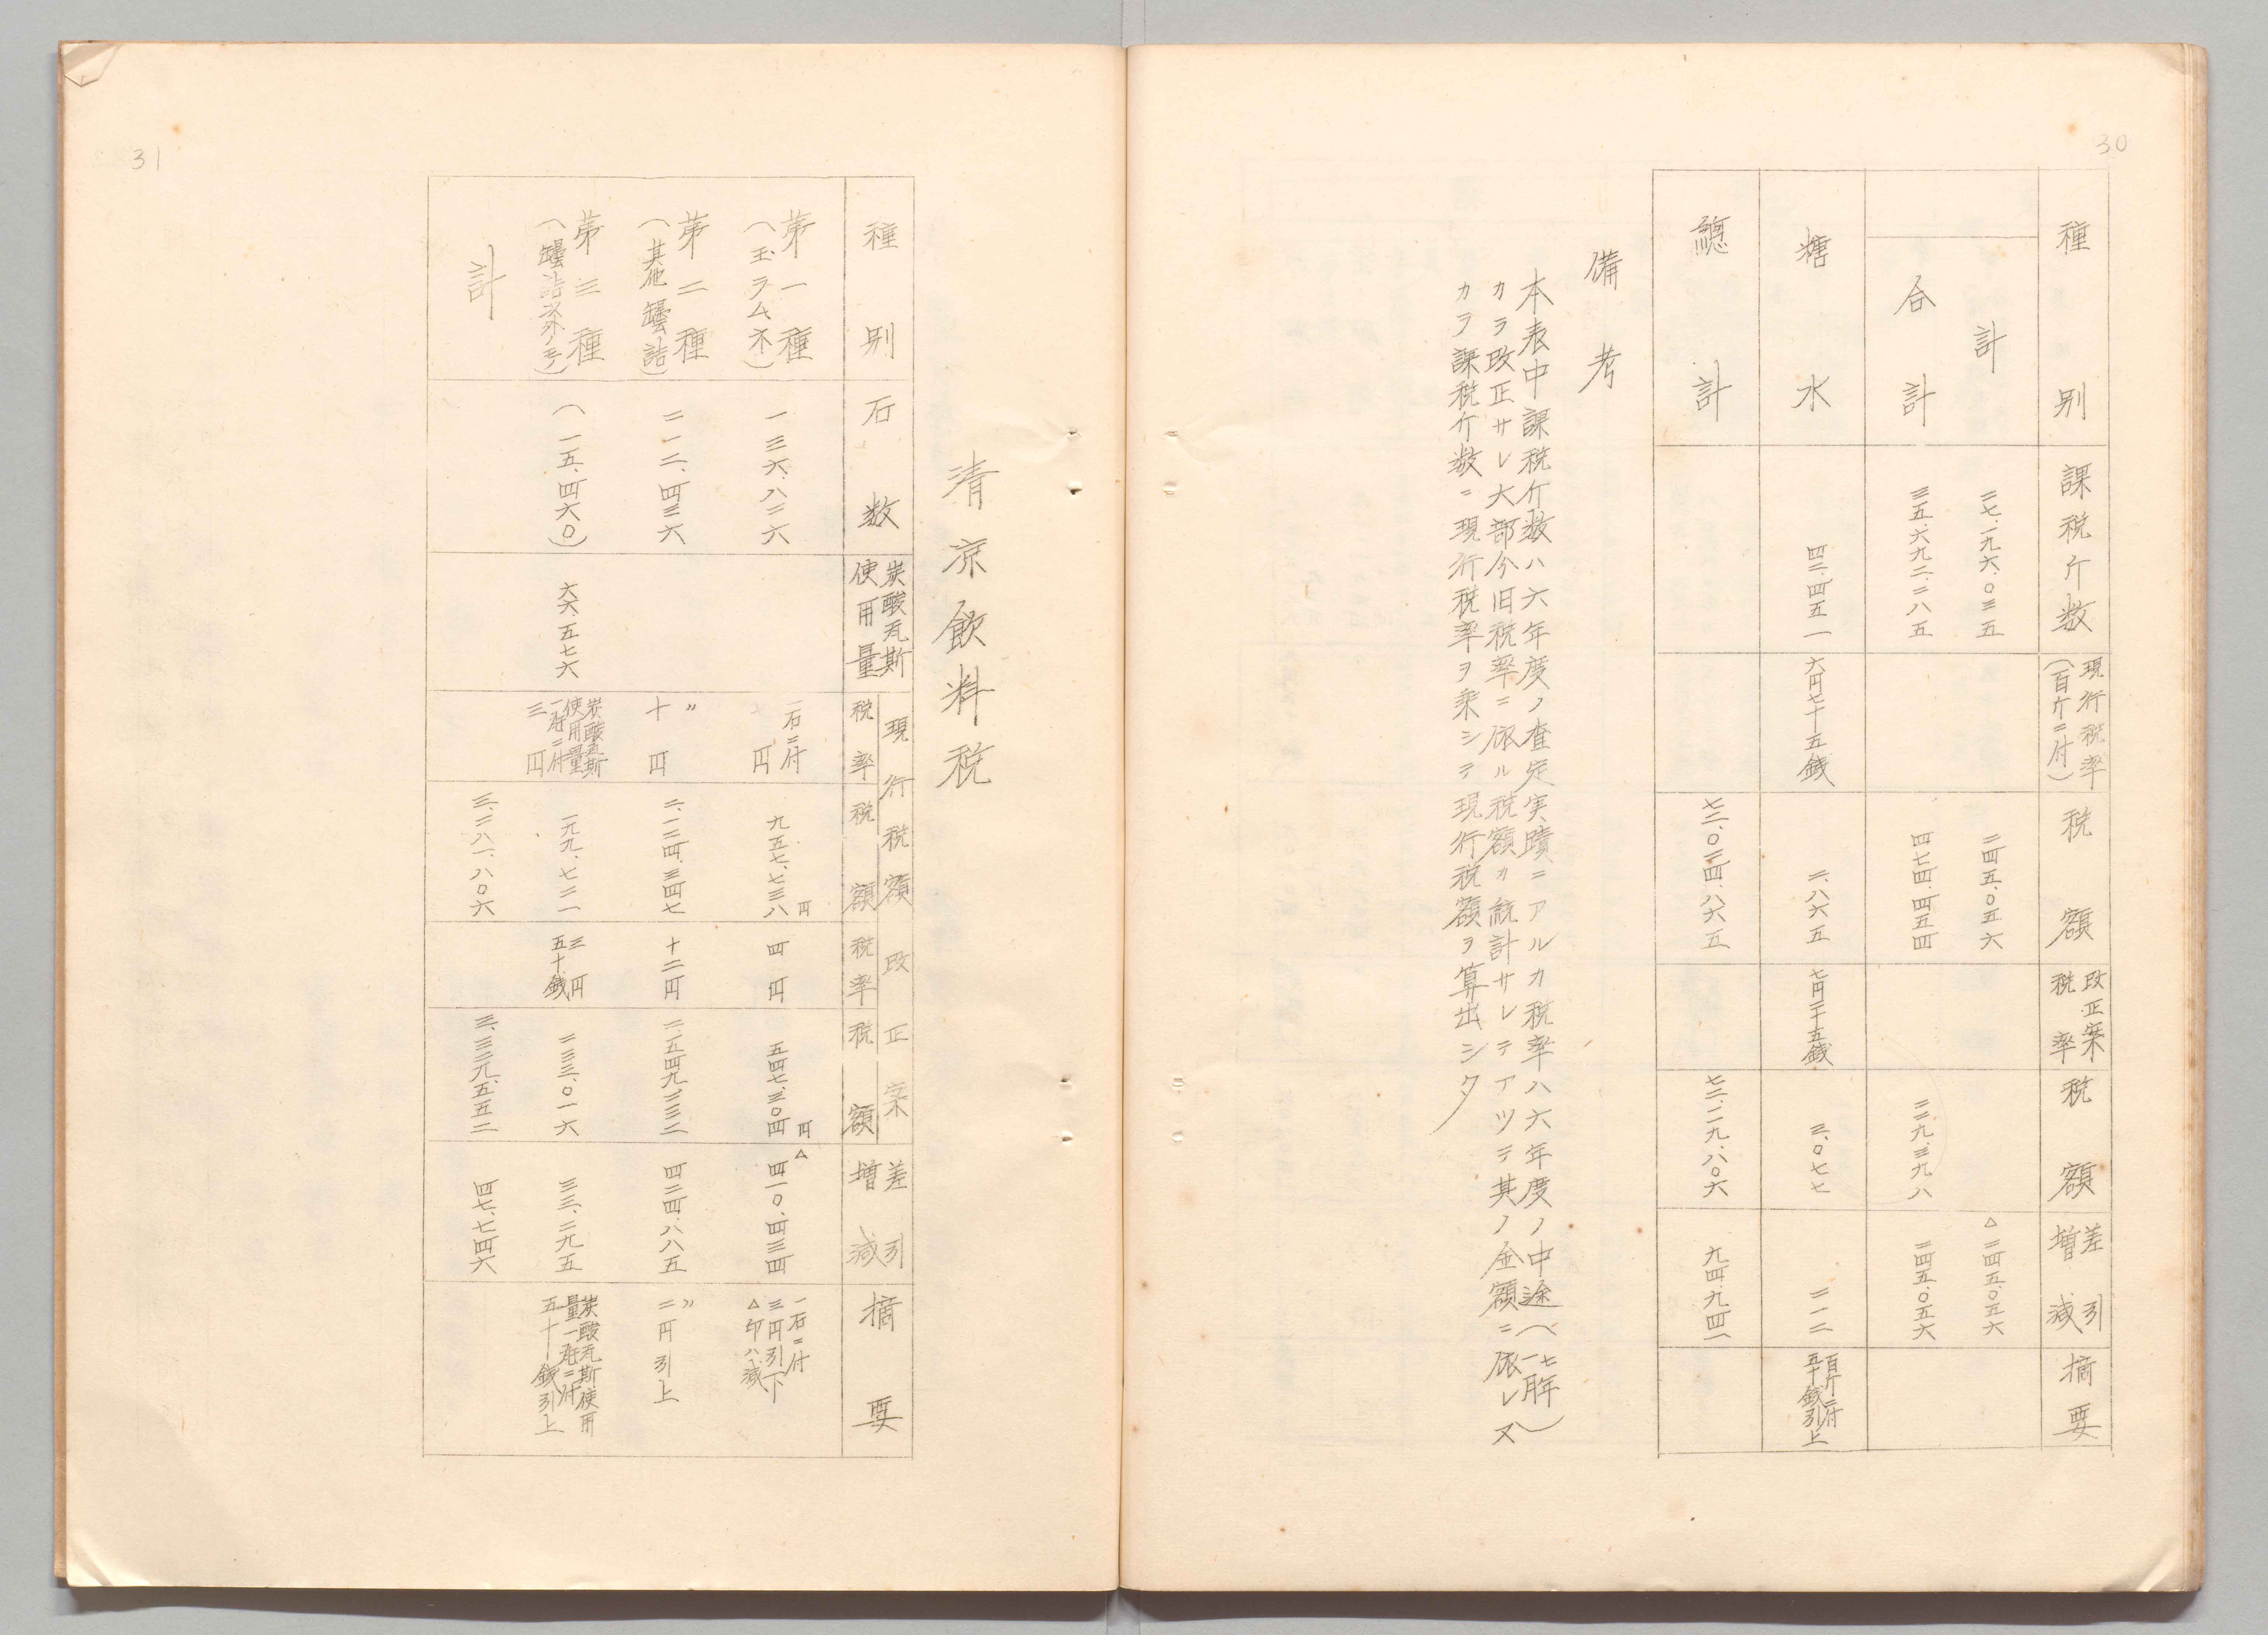 30
種別
課税斤数
現行税率
(百斤ニ付)
税額
改正案
税率
税額
差引
増減
摘要
計
二七、一九六、〇三五
二四五、〇五六
△二四五、〇五六
合計
三五、六九二、二八五
四七四、四五四
二二九、三九八
二四五、〇五六
糖水
四二、四五一
六円七十五銭
二、八六五
七円二十五銭
三、〇七七
二一二
百斤ニ付
五十銭引上
總計
七二、〇二四、八六五
七二、一一九、八〇六
九四、九四一
備考
本表中課税斤数ハ六年度ノ査定実蹟ニアルカ税率ハ六年度ノ中途(七年一月)
カラ改正サレ大部分旧税率ニ依ル税額カ統計サレテアツテ其ノ金額ニ依レヌ
カラ課税斤数ニ現行税率ヲ乗シテ現行税額ヲ算出シタ
31
清凉飲料税
種別
石数
炭酸瓦斯
使用量
現行税額
税率
税額
改正案
税率
税額
差引
増減
摘要
第一種
(玉ラムネ)
一三六、八二六
一石ニ付
七円
九五七、七三八円
四円
五四七、三〇四円
△四一〇、四三四
一石ニ付
三円引下
△印ハ減
第二種
(其他罎詰)
二一二、四三六
〃
十円
二、一二四、三四七
十二円
二、五四九、二三二
四二四、八八五
〃
二円引上
第三種
(罎詰以外ノモノ)
(一五、四六〇)
六六、五七六
炭酸瓦斯
使用量
一瓩ニ付
三円
一九九、七二一
三円
五十銭
二三三、〇一六
三三、二九五
炭酸瓦斯使用
量一瓩ニ付
五十銭引上
計
三、二八一、八〇六
三、三二九、五五二
四七、七四六